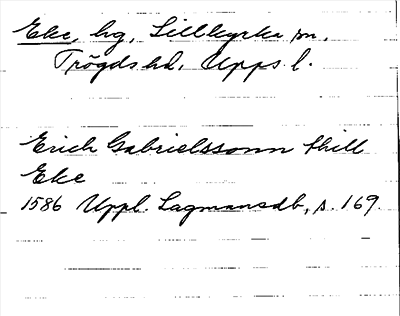 Eke, hg, Lillkyrka sn,
Trögds hd, Upps l.
Erich Gabrielssonn thill
Eke
1586 Uppl. Lagmansdb, s. 169.